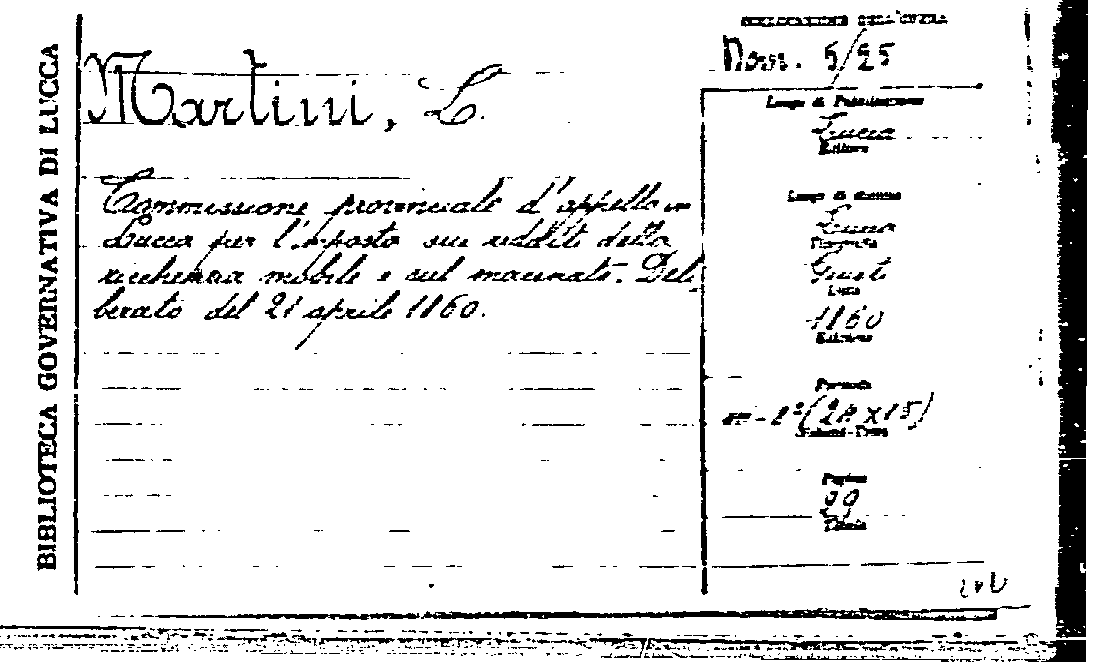 BIBLIOTECA GOVERNATIVA DI LUCCA
COLLOCAZIONE DELL'OPERA
Martini, L.
Commissione provinciale d'appello in
Lucca per l'imposta sui redditi della
ricchezza mobile e sul macinato. Deli
berato del 21 aprile 1160.
Luogo di Pubblicazione
Lucca
Editore
Luogo di stampa
Lucca
Tipografia
Giusti
Data
1160
Edizione
Formato
(24 x 15)
Volumi-Tomi
Pagine